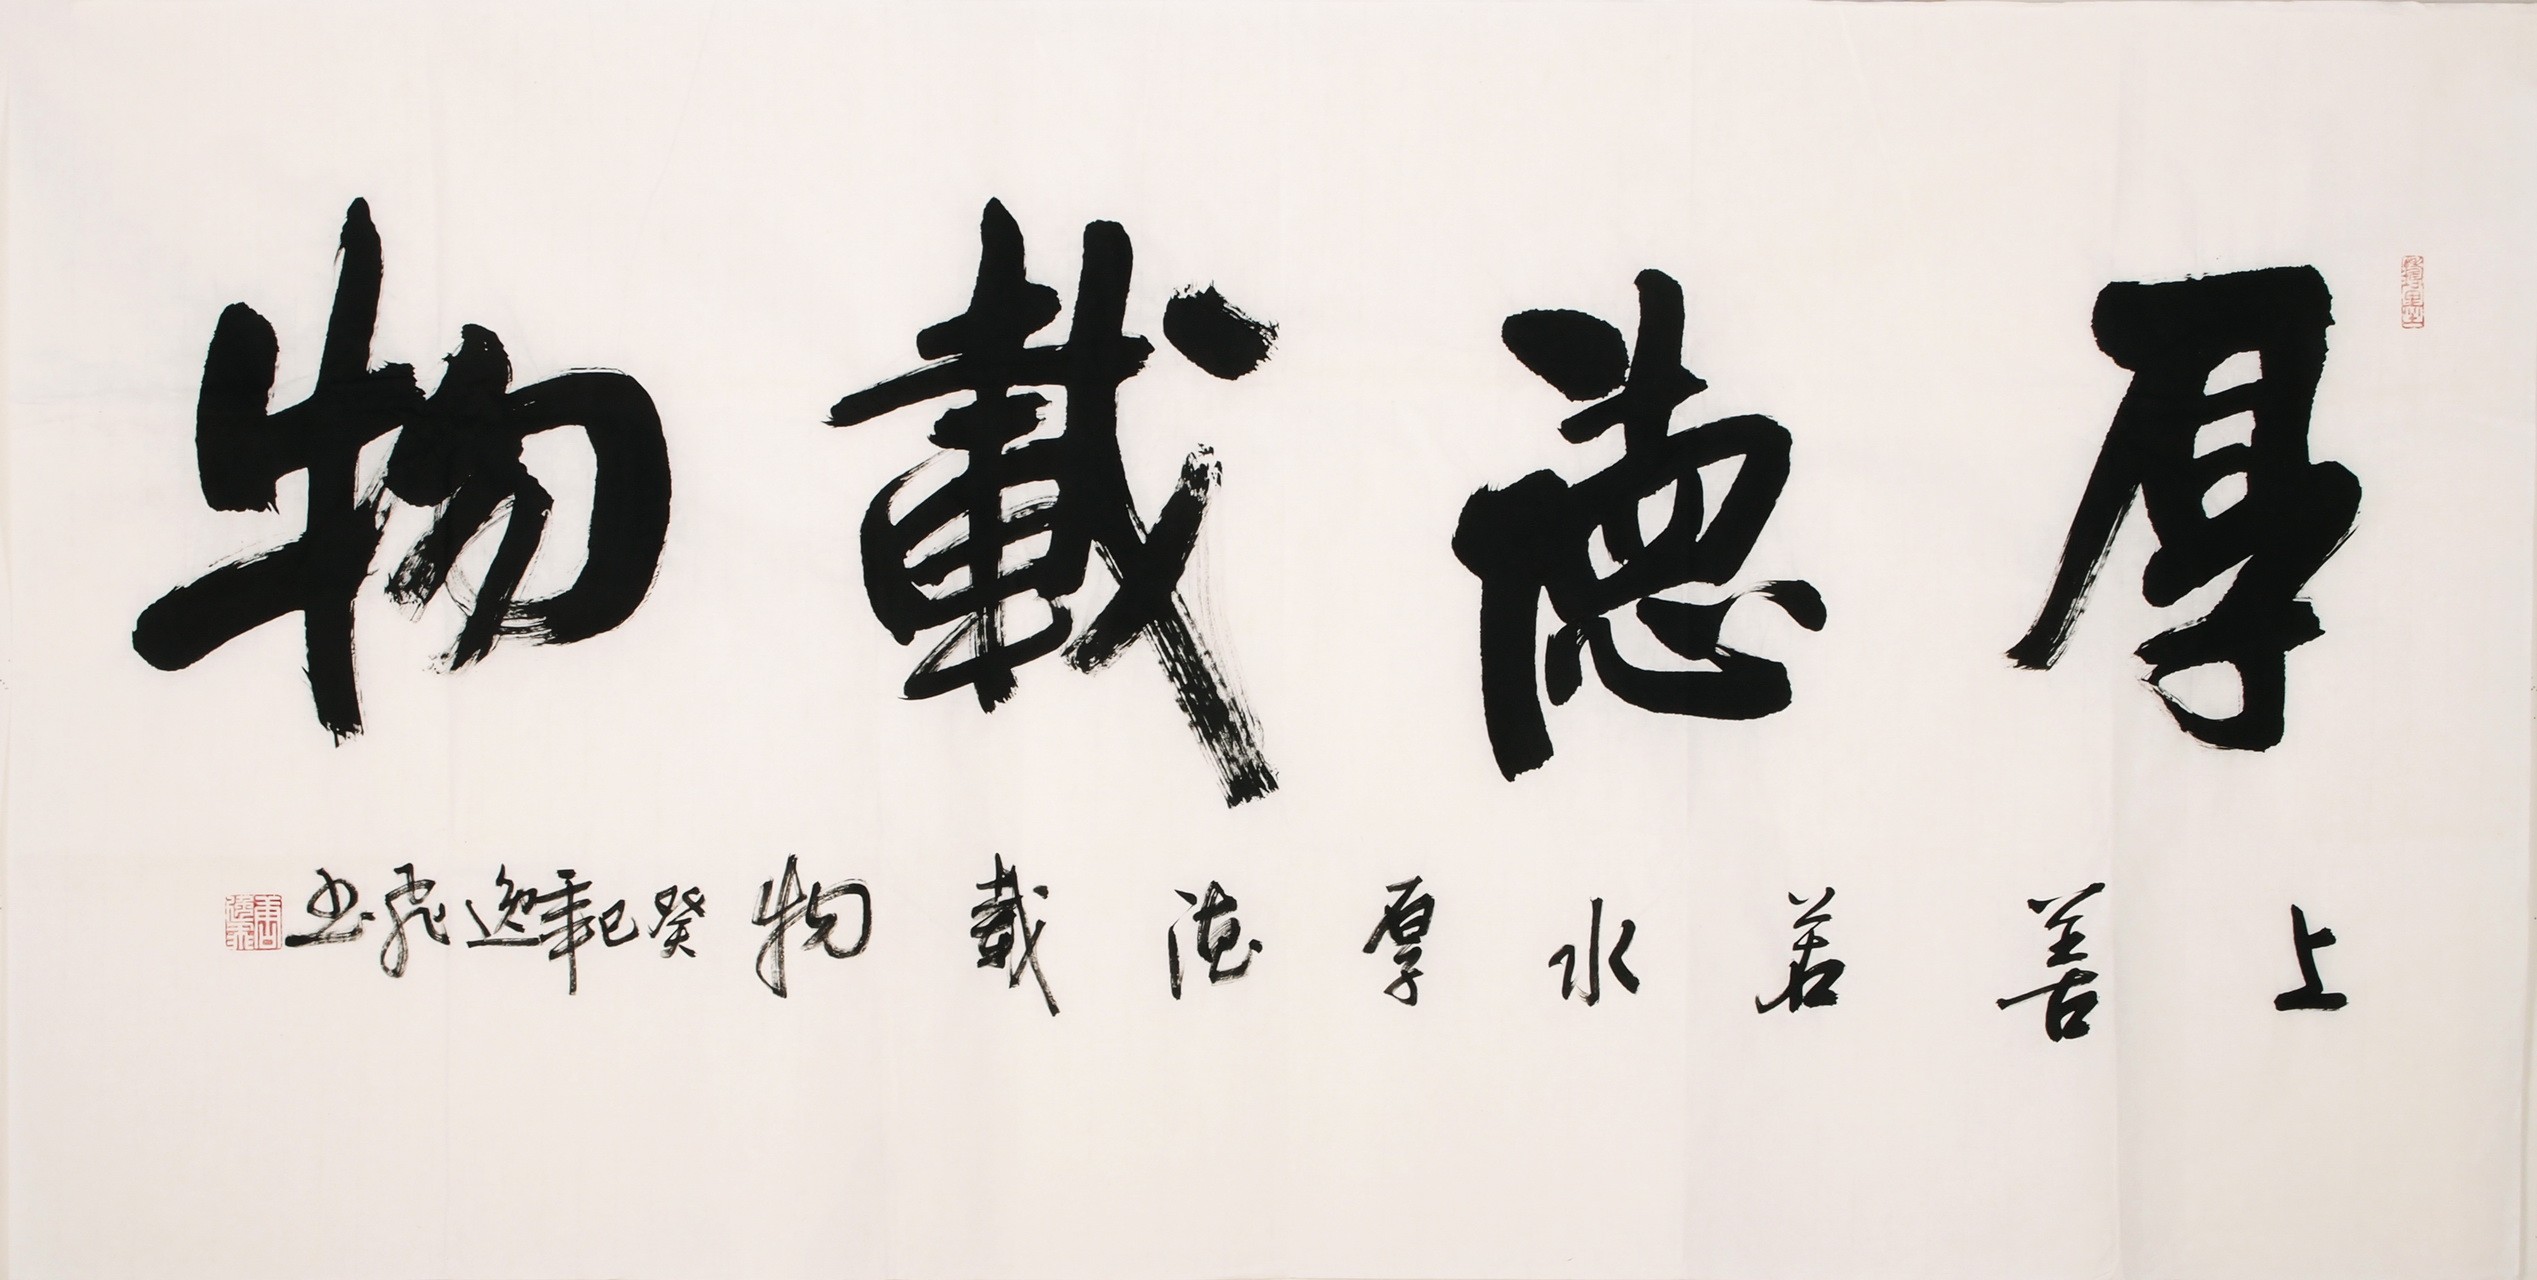 厚德載物
上善若水厚德載物癸巳年逸飛书